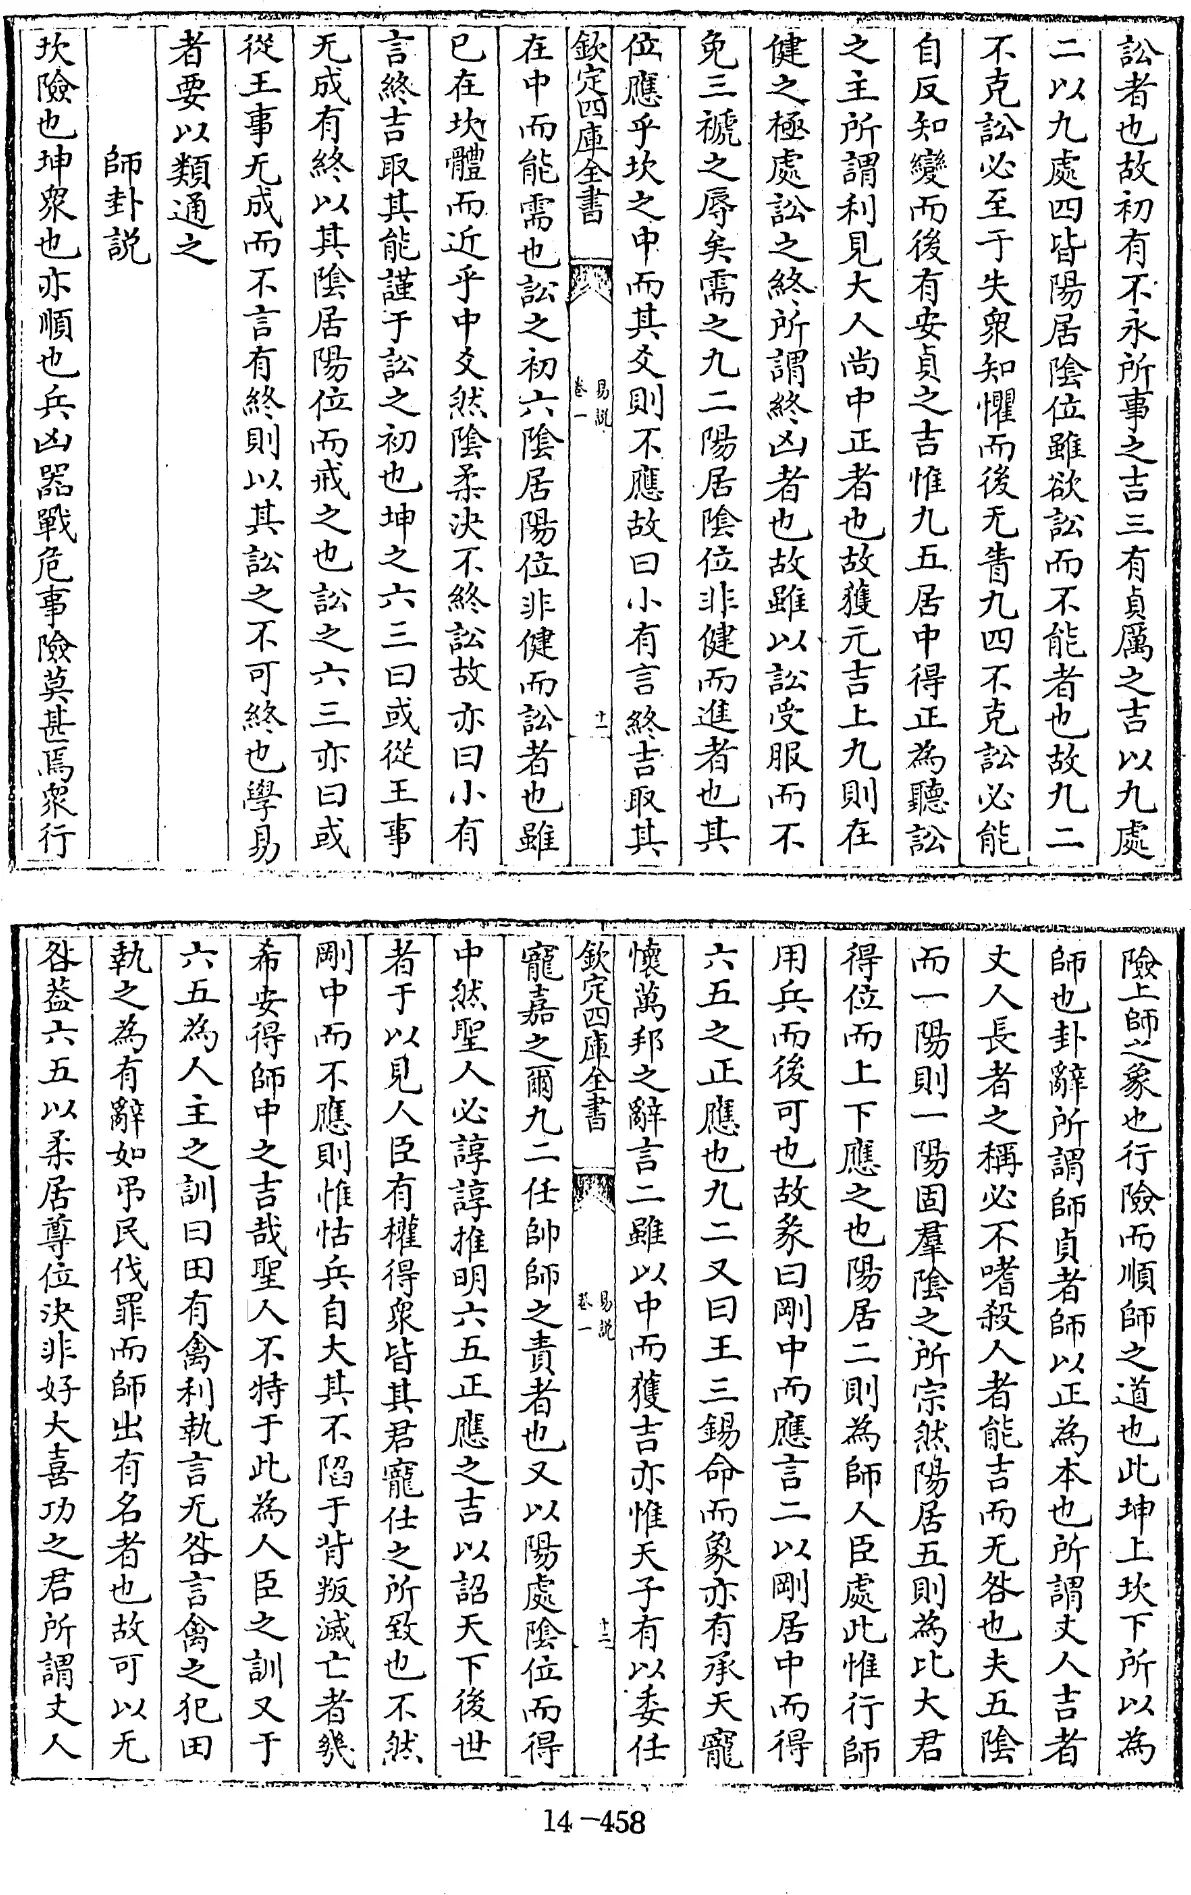 訟者也故初有不永所事之吉三有貞厲之吉以九處
二以九處四皆陽居陰位雖欲訟而不能者也故九二
不克訟必至于失衆知懼而後无眚九四不克訟必能
自反知變而後有安貞之吉惟九五居中得正為聽訟
之主所謂利見大人尚中正者也故獲元吉上九則在
健之極處訟之終所謂終凶者也故雖以訟受服而不
免三褫之辱矣需之九二陽居陰位非健而進者也其
位應乎坎之中而其爻則不應故曰小有言終吉取其
欽定四庫全書
易說
卷一
十二
在中而能需也訟之初六陰居陽位非健而訟者也雖
已在坎體而近乎中爻然陰柔決不終訟故亦曰小有
言終吉取其能謹于訟之初也坤之六三曰或從王事
无成有終以其陰居陽位而戒之也訟之六三亦曰或
從王事无成而不言有終則以其訟之不可終也學易
者要以類通之
師卦説
坎險也坤衆也亦順也兵凶器戰危事險莫甚焉衆行
險上師之象也行險而順師之道也此坤上坎下所以為
師也卦辭所謂師貞者師以正為本也所謂丈人吉者
丈人長者之稱必不嗜殺人者能吉而无咎也夫五陰
而一陽則一陽固羣陰之所宗然陽居五則為比大君
得位而上下應之也陽居二則為師人臣處此惟行師
用兵而後可也故彖曰剛中而應言二以剛居中而得
六五之正應也九二又曰王三錫命而象亦有承天寵
懷萬邦之辭言二雖以中而獲吉亦惟天子有以委任
欽定四庫全書
易說
卷一
十三
寵嘉之爾九二任帥師之責者也又以陽處陰位而得
中然聖人必諄諄推明六五正應之吉以詔天下後世
者于以見人臣有權得衆皆其君寵任之所致也不然
剛中而不應則惟怙兵自大其不陷于背叛滅亡者幾
希安得師中之吉哉聖人不特于此為人臣之訓又于
六五為人主之訓曰田有禽利執言无咎言禽之犯田
執之為有辭如弔民伐罪而師出有名者也故可以无
咎葢六五以柔居尊位決非好大喜功之君所謂丈人
14-458